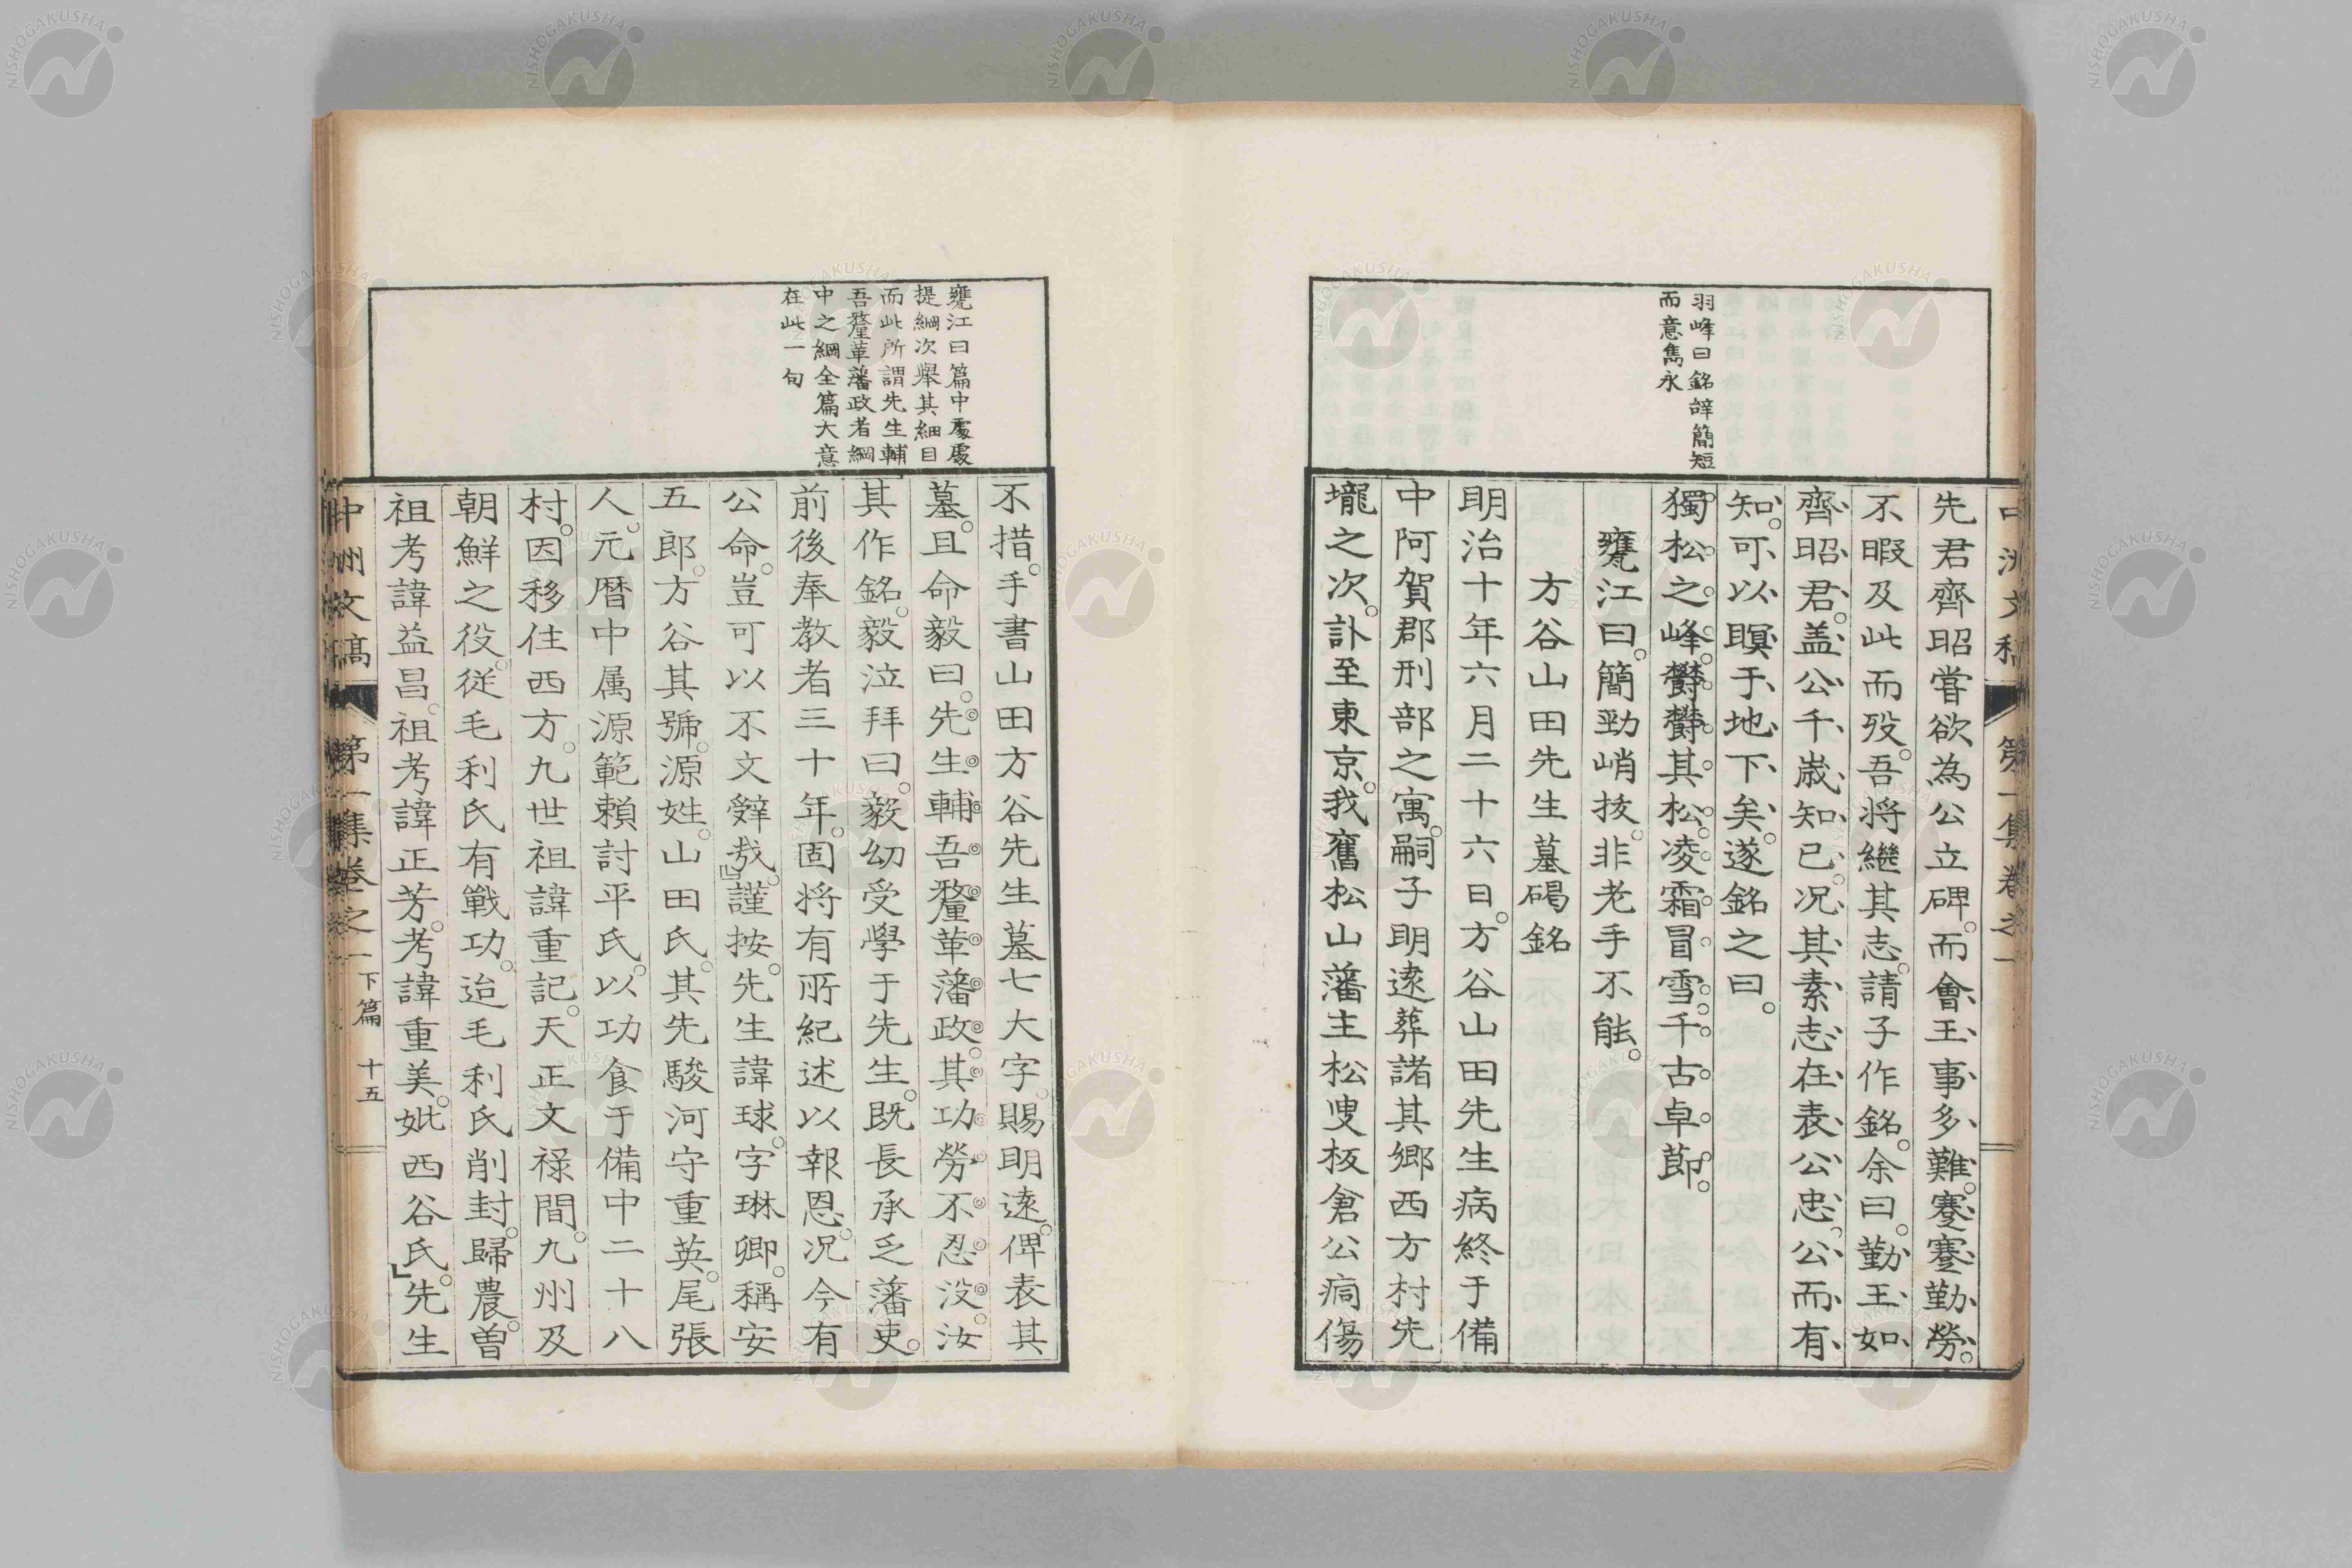 羽峰曰銘辭簡短
而意雋永
先君齊昭嘗欲為公立碑。而會王事多難。蹇蹇勤勞。
不暇及此而歿。吾将繼其志。請子作銘。余曰。勤王如
齊昭君。盖公千歳知己。况其素志在表公忠。公而有
知。可以瞑于地下矣。遂銘之曰。
獨松之峰。欝欝其松。凌霜冒雪。千古卓節。
甕江曰。簡勁峭拔。非老手不能。
方谷山田先生墓碣銘
明治十年六月二十六日。方谷山田先生病終于備
中阿賀郡刑部之寓。嗣子明遠葬諸其鄉西方村先
壠之次。訃至東京。我舊松山藩主松叟板倉公痌傷
甕江曰篇中處處
提綱次舉其細目
而此所謂先生輔
吾釐革藩政者綱
中之綱全篇大意
在此一句
不措。手書山田方谷先生墓七大字。賜明遠。俾表其
墓。且命毅曰。先生輔吾釐革藩政。其功勞不忍没。汝
其作銘。毅泣拜曰。毅幼受學于先生。既長承乏藩吏。
前後奉教者三十年。固将有所紀述以報恩。况今有
公命。豈可以不文辤㢤。』謹按。先生諱球。字琳卿。稱安
五郎。方谷其號。源姓。山田氏。其先駿河守重英。尾張
人。元暦中属源範頼討平氏。以功食于備中二十八
村。因移住西方。九世祖諱重記。天正文禄間。九州及
朝鮮之役。従毛利氏有戰功。迨毛利氏削封。歸農。曽
祖考諱益昌。祖考諱正芳。考諱重美。妣西谷氏。』先生
中洲文稿 第一集卷之一 下篇 十五